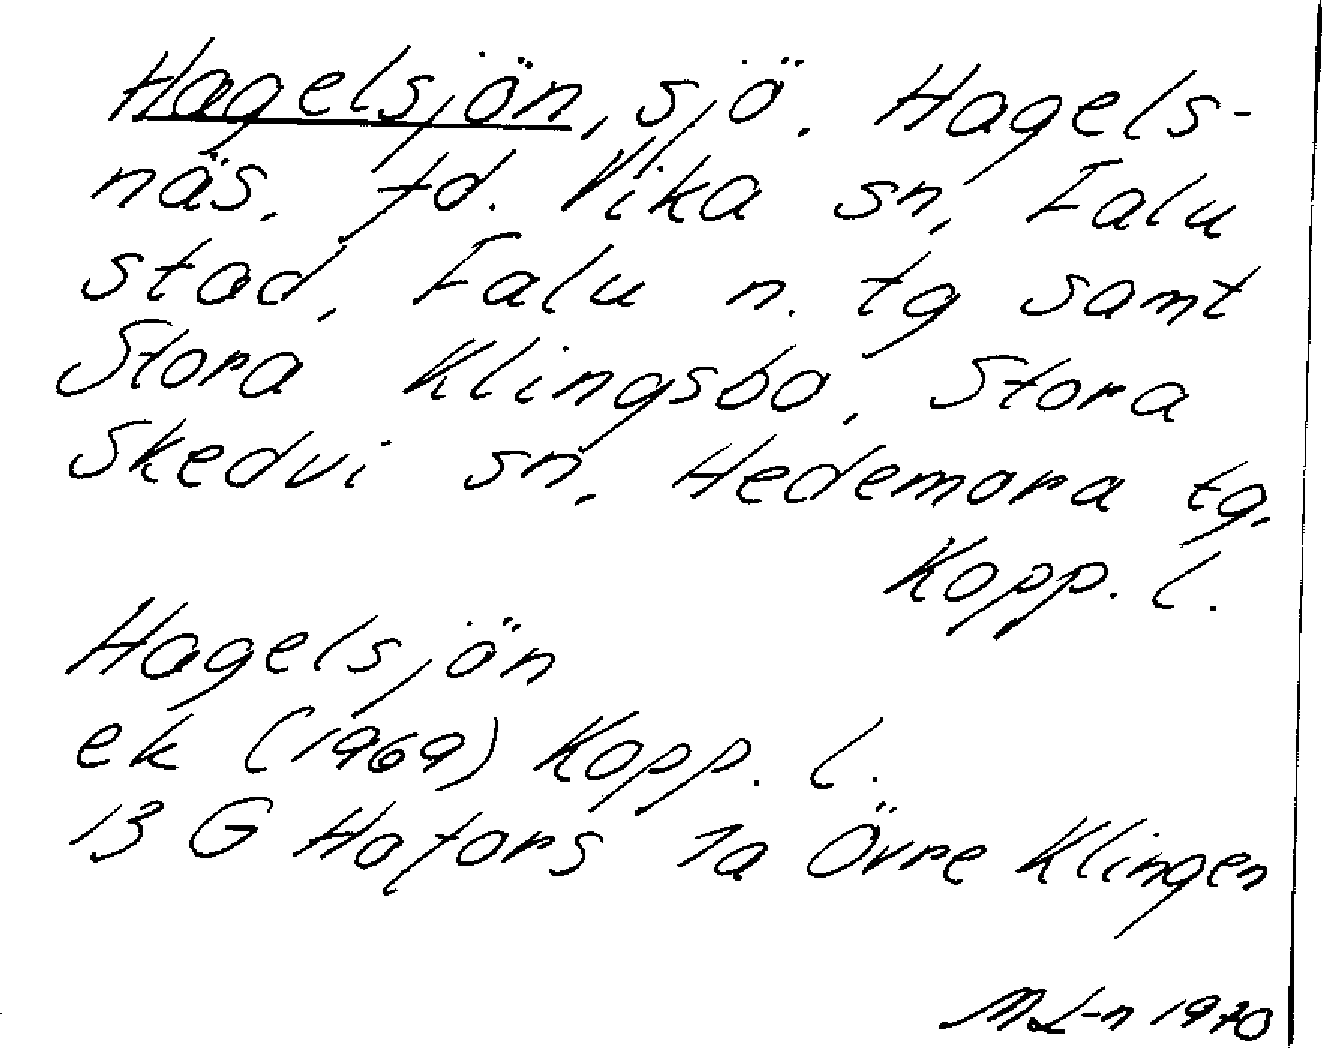 Hagelsjön, sjö. Hagels-
näs. fd. Vika sn, Falu
stad, Falu n. tg samt
Stora Klingsbo, Stora
Skedvi sn, Hedemora tg,
Kopp. l.
Hagelsjön
ek (1969) Kopp. l.
13 G Hofors 1a Övre Klingen
M L-n 1970